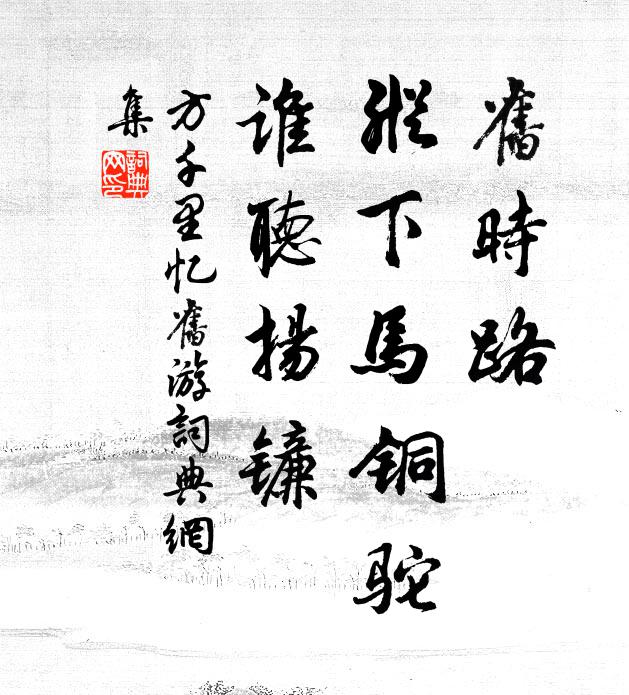 舊時路
縱下馬銅駝
誰聽揚鑣
方千里忆舊游詞典網
集
詞典網印